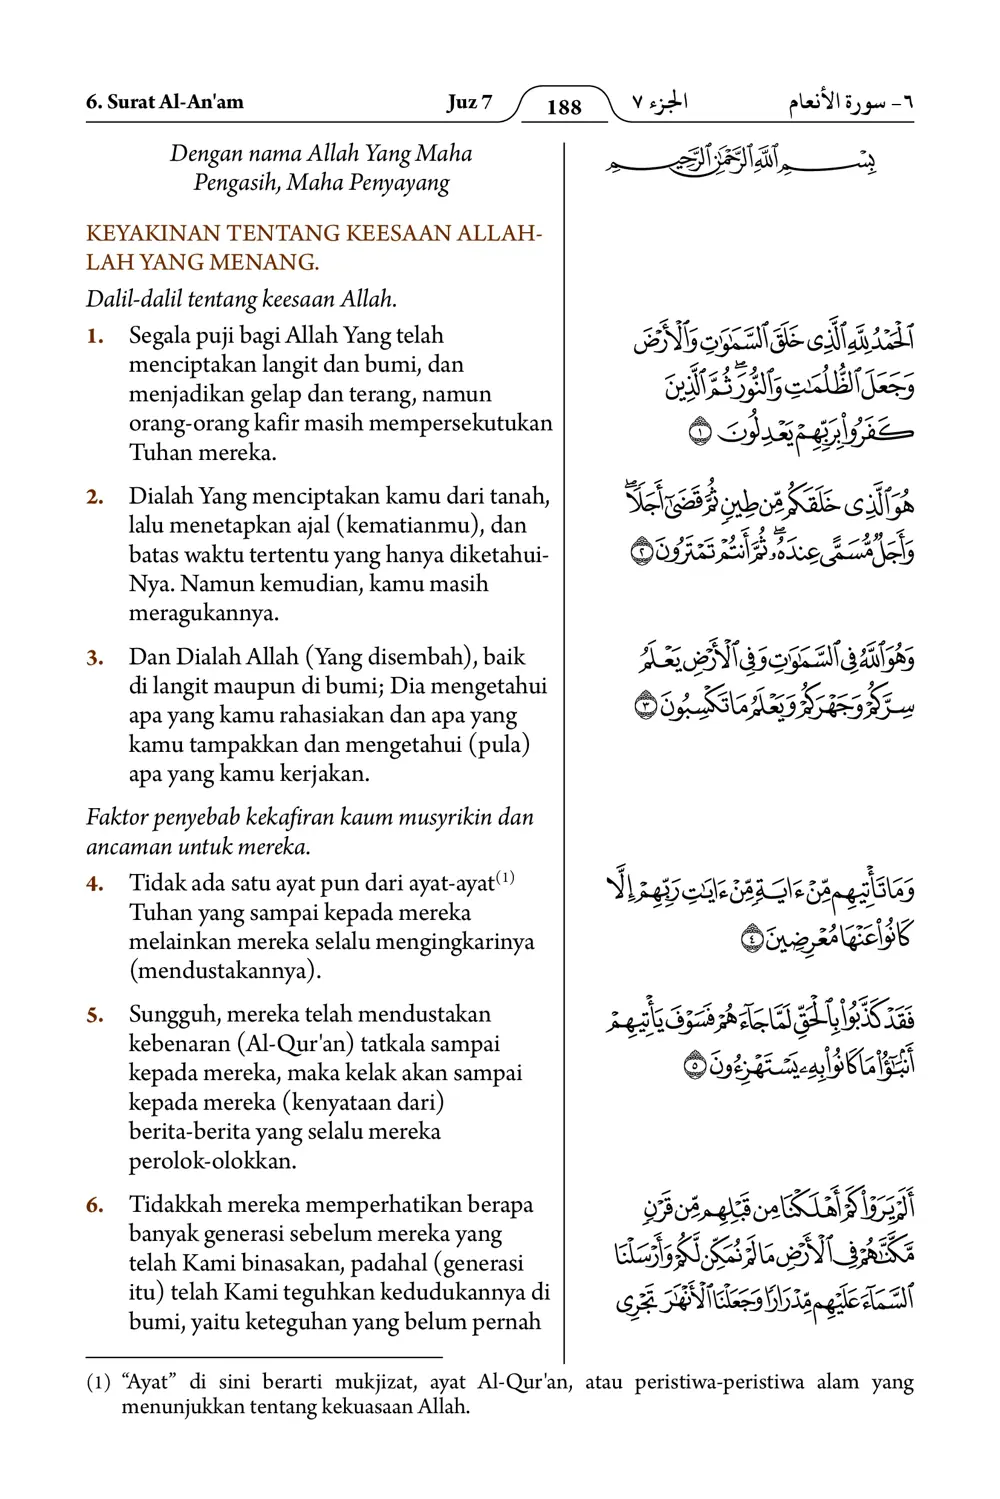 6. Surat Al-An'am
Juz 7
188
الجزء ٧
٦- سورة الأنعام
Dengan nama Allah Yang Maha
Pengasih, Maha Penyayang
بِسْمِ ٱللَّهِ ٱلرَّحْمَٰنِ ٱلرَّحِيمِ
KEYAKINAN TENTANG KEESAAN ALLAH-
LAH YANG MENANG.
Dalil-dalil tentang keesaan Allah.
1. Segala puji bagi Allah Yang telah
menciptakan langit dan bumi, dan
menjadikan gelap dan terang, namun
orang-orang kafir masih mempersekutukan
Tuhan mereka.
ٱلْحَمْدُ لِلَّهِ ٱلَّذِى خَلَقَ ٱلسَّمَٰوَٰتِ وَٱلْأَرْضَ
وَجَعَلَ ٱلظُّلُمَٰتِ وَٱلنُّورَ ۖ ثُمَّ ٱلَّذِينَ
كَفَرُوا۟ بِرَبِّهِمْ يَعْدِلُونَ ١
2. Dialah Yang menciptakan kamu dari tanah,
lalu menetapkan ajal (kematianmu), dan
batas waktu tertentu yang hanya diketahui-
Nya. Namun kemudian, kamu masih
meragukannya.
هُوَ ٱلَّذِى خَلَقَكُم مِّن طِينٍ ثُمَّ قَضَىٰٓ أَجَلًا ۖ
وَأَجَلٌ مُّسَمًّى عِندَهُۥ ۖ ثُمَّ أَنتُمْ تَمْتَرُونَ ٢
3. Dan Dialah Allah (Yang disembah), baik
di langit maupun di bumi; Dia mengetahui
apa yang kamu rahasiakan dan apa yang
kamu tampakkan dan mengetahui (pula)
apa yang kamu kerjakan.
وَهُوَ ٱللَّهُ فِى ٱلسَّمَٰوَٰتِ وَفِى ٱلْأَرْضِ يَعْلَمُ
سِرَّكُمْ وَجَهْرَكُمْ وَيَعْلَمُ مَا تَكْسِبُونَ ٣
Faktor penyebab kekafiran kaum musyrikin dan
ancaman untuk mereka.
4. Tidak ada satu ayat pun dari ayat-ayat(1)
Tuhan yang sampai kepada mereka
melainkan mereka selalu mengingkarinya
(mendustakannya).
وَمَا تَأْتِيهِم مِّنْ ءَايَةٍ مِّنْ ءَايَٰتِ رَبِّهِمْ إِلَّا
كَانُوا۟ عَنْهَا مُعْرِضِينَ ٤
5. Sungguh, mereka telah mendustakan
kebenaran (Al-Qur'an) tatkala sampai
kepada mereka, maka kelak akan sampai
kepada mereka (kenyataan dari)
berita-berita yang selalu mereka
perolok-olokkan.
فَقَدْ كَذَّبُوا۟ بِٱلْحَقِّ لَمَّا جَآءَهُمْ فَسَوْفَ يَأْتِيهِمْ
أَنۢبَٰٓؤُا۟ مَا كَانُوا۟ بِهِۦ يَسْتَهْزِءُونَ ٥
6. Tidakkah mereka memperhatikan berapa
banyak generasi sebelum mereka yang
telah Kami binasakan, padahal (generasi
itu) telah Kami teguhkan kedudukannya di
bumi, yaitu keteguhan yang belum pernah
أَلَمْ يَرَوْا۟ كَمْ أَهْلَكْنَا مِن قَبْلِهِم مِّن قَرْنٍ
مَّكَّنَّٰهُمْ فِى ٱلْأَرْضِ مَا لَمْ نُمَكِّن لَّكُمْ وَأَرْسَلْنَا
ٱلسَّمَآءَ عَلَيْهِم مِّدْرَارًا وَجَعَلْنَا ٱلْأَنْهَٰرَ تَجْرِى
(1) “Ayat” di sini berarti mukjizat, ayat Al-Qur'an, atau peristiwa-peristiwa alam yang
menunjukkan tentang kekuasaan Allah.